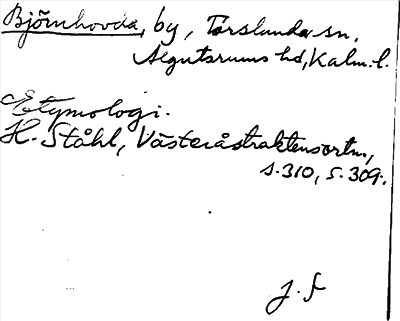 Björnhovda, by, Torslunda sn,
Algutsrums hd, Kalm. l.
Etymologi.
H. Ståhl, Västeråstraktens ortn.,
s. 310, s. 309.
J. F